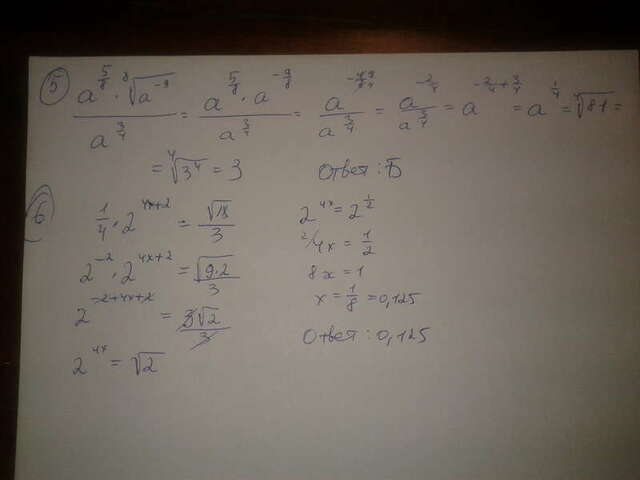 5 (a^(5/8) · ⁸√(a^-9)) / a^(3/4) = (a^(5/8) · a^(-9/8)) / a^(3/4) = / a^(3/4) = a^(-2/4) / a^(3/4) = a^(-2/4+3/4) = a^(1/4) = ⁴√81 =
= ⁴√(3^4) = 3 Ответ: Б
6
1/4 · 2^(4x+2) = √18 / 3
2^(-2) · 2^(4x+2) = √(9·2) / 3
2^(-2+4x+2) = 3√2 / 3
2^(4x) = √2
2^(4x) = 2^(1/2)
2/ 4x = 1/2
8x = 1
x = 1/8 = 0,125
Ответ: 0,125